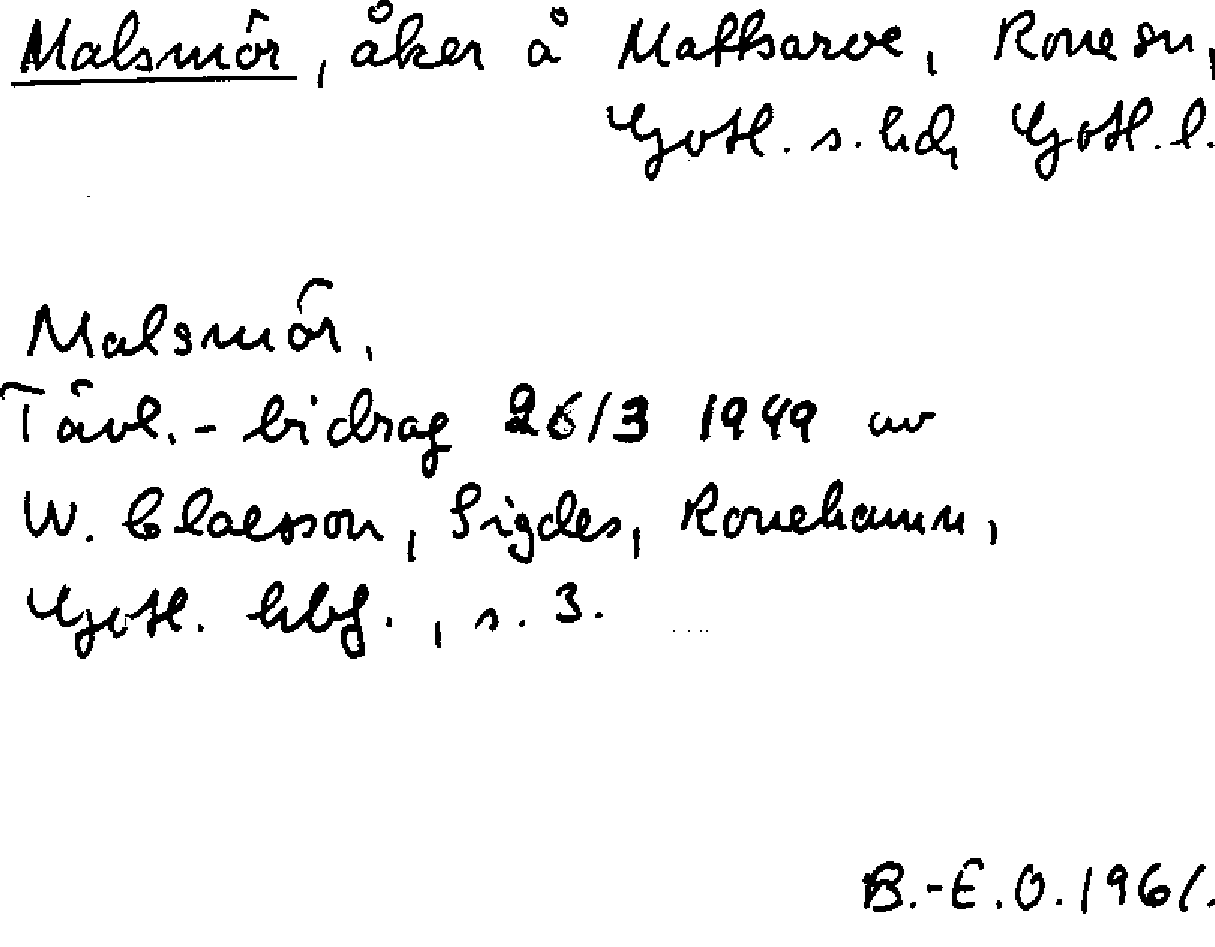 Malsmör, åker å Mattsarve, Rone sn,
Gotl. s. hd, Gotl. l.
Malsmör.
Tävl.-bidrag 26/3 1949 av
W. Claesson, Sigdes, Ronehamn,
Gotl. hbf., s. 3.
B.-E.O. 1961.